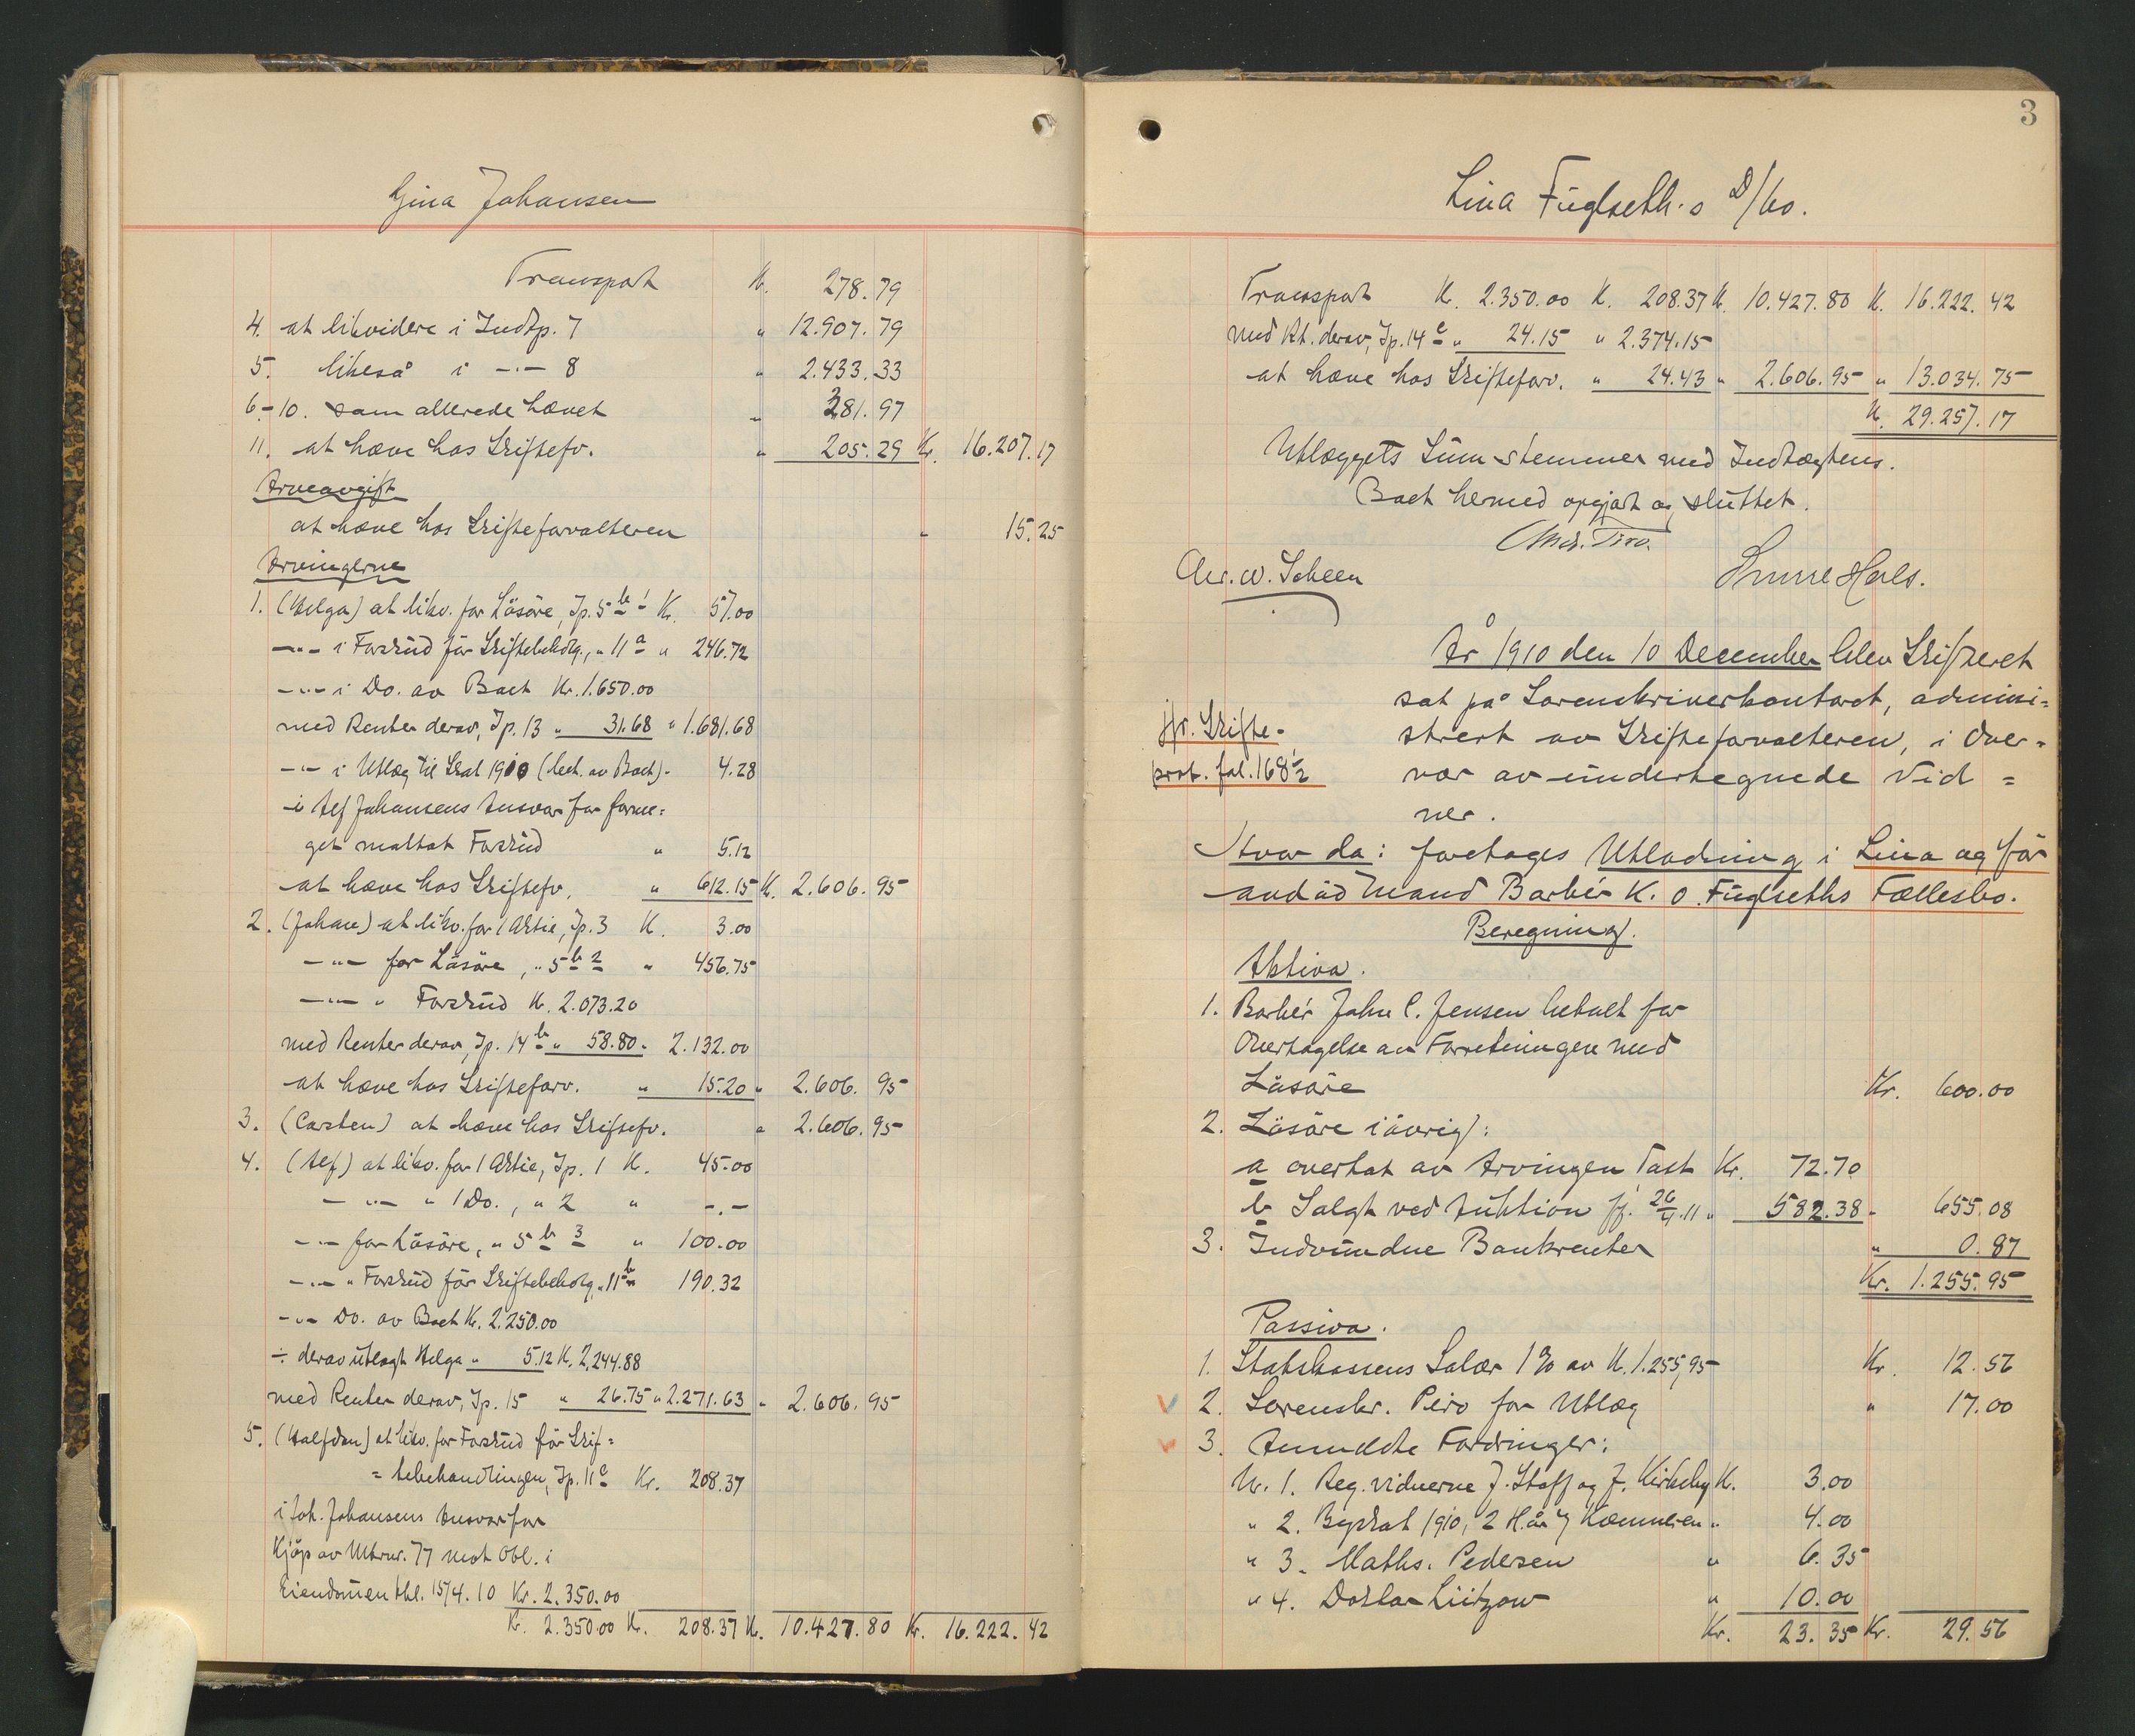 Gina Johansen
Transport K. 278.79
4. at likvidere i Indtp. 7 " 12.907.79
5. likeså i -"- 8 " 2.433.33
6-10. som allerede hævet " 381.97
11. at hæve hos Skiftefv. " 205.29 Kr. 16.207.17
Arveavgift
at hæve hos Skifteforvalteren " 15.25
Arvingerne
1. (Helga) at likv. for Løsøre, Ip. 5 b 1 Kr. 57.00
-"- i Forskud før Skiftebehdlg., " 11 a " 246.72
-"- i Do. av Boet Kr. 1.650.00
med Renter derav, Ip. 13 " 31.68 " 1.681.68
-"- i Utlæg til Skat 1910 (bet. av Boet) - 4.28
i Alf Johansens Ansvar for forme=
get mottat Forskud " 5.12
at hæve hos Skiftefv. " 612.15 K. 2.606.95
2. (Johan) at likv. for 1 Aktie, Ip. 3 K. 3.00
-"- for Løsøre, " 5 b 2 " 456.75
-"- " Forskud K. 2.073.20
med Renter derav, Ip. 14 b " 58.80 " 2.132.00
at hæve hos Skifteforv. " 15.20 " 2.606.95
3. (Carsten) at hæve hos Skiftefv. " 2.606.95
4. (Alf) at likv. for 1 Aktie, Ip. 1 K. 45.00
-"- " 1 Do., " 2 " -.-
-"- for Løsøre, " 5 b 3 " 100.00
-"- " Forskud før Skiftebehdlg. " 11 b " 190.32
-"- Do. av Boet K. 2.250.00
÷ derav utlagt Helga " 5.12 K. 2,244.88
med Renter derav, Ip. 15 " 26.75 " 2.271.63 " 2.606.95
5. (Halfdan) at likv. for Forskud før Skif=
=tebehandlingen, Ip. 11 c Kr. 208.37
i Joh. Johansens Ansvar for
Kjøp av Mtrnr. 77 mot Obl. i
Eiendommen thl. 15/4.10 Kr. 2.350.00
K. 2.350.00 K. 208.37 K. 10.427.80 Kr. 16.222.42
3
Lina Fuglseth's D/bo.
Transport K. 2.350.00 K. 208.37 K. 10.427.80 K. 16.222.42
med Rt. derav, Ip. 14 c " 24.15 " 2.374.15
at hæve hos Skifteforv. " 24.43 " 2.606.95 " 13.034.75
K. 29.257.17
Utlæggets Sum stemmer med Indtægtens.
Boet hermed opgjort og sluttet.
Chr. W. Scheen
År 1910 den 10 December blev Skifteret
sat på Sorenskriverkontoret, admini=
strert av Skifteforvalteren, i Over=
vær av undertegnede Vid=
ner.
Jfr. Skifte-
prot. fol. 168 1/2
Hvor da: foretages Utlodning i Lina og før
avdød Mand Barbér K. O. Fuglseths Fællesbo.
Beregning.
Aktiva.
1. Barbér John C. Jensen betalt for
Overtagelse av Forretningen med
Løsøre Kr. 600.00
2. Løsøre iøvrig:
a overtat av Arvingen Kr. 72.70
b Solgt ved Auktion jf. 26/4.11 " 582.38 " 655.08
3. Indvundne Bankrenter " 0.87
Kr. 1.255.95
Passiva.
1. Statskassens Salær 1% av K. 1.255,95 Kr. 12.56
2. Sorenskr. for Utlæg " 17.00
3. Anmeldte Fordringer:
Nr. 1. Reg. vidnerne J. Staff og J. Kirkeby K. 3.00
" 2. Byskat 1910, 2 H.år Kæmneren " 4.00
" 3. Maths. Pedersen " 6.35
" 4. Doktor Lützow " 10.00
Kr. 23.35 Kr. 29.56